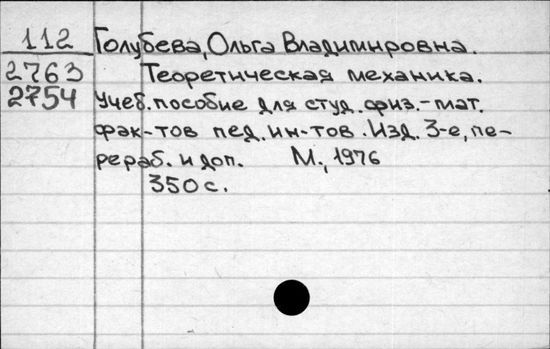 112 Голубева, Ольга Владимировна.
2763 Теоретическая механика.
2754 Учеб. пособие для студ. физ.-мат.
фак-тов пед. ин-тов. Изд. 3-е, пе-
рераб. и доп. М., 1976
350 с.